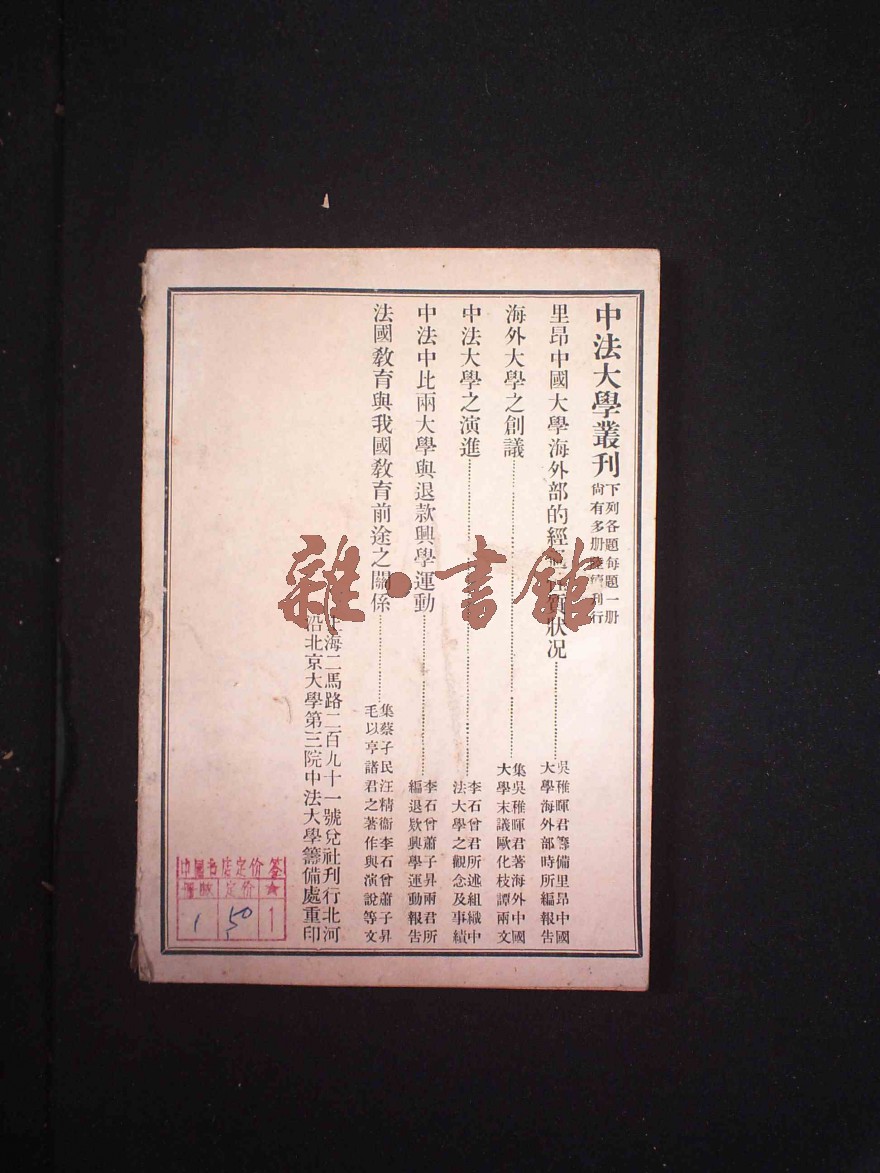 中法大學叢刊
下列各題每題一册
尙有多册陸續刊行
里昂中國大學海外部的經 狀况
吳稚暉君籌備里昂中國
大學海外部時所編報告
海外大學之創議
集吳稚暉君著海外中國
大學末議歐化枝譚兩文
中法大學之演進
李石曾君所述組織中
法大學之觀念及事績
中法中比兩大學與退款興學運動
李石曾蕭子昇兩君所
編退欵興學運動報告
法國敎育與我國敎育前途之關係
集蔡孑民汪精衞李石曾蕭子昇
毛以亨諸君之著作與演說等文
上海二馬路二百九十一號兌社刊行北河
沿北京大學第三院中法大學籌備處重印
雜·書館
中國书店定价签
册数 定价 ★
1 50 1